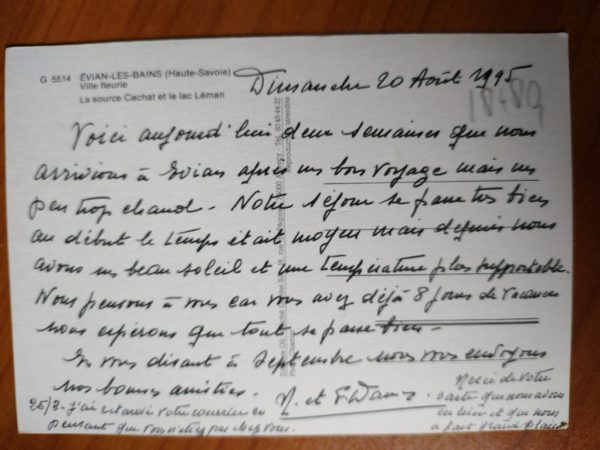 G 5514 ÉVIAN-LES-BAINS (Haute-Savoie)
Ville fleurie
La source Cachat et le lac Léman
Dimanche 20 Août 1995
Voici aujourd'hui deux semaines que nous
arrivions à Evian après un bon voyage mais un
peu trop chaud - Notre séjour se passe très bien
au début le temps était moyen mais depuis nous
avons un beau soleil et une température plus supportable.
Nous pensons à vous car vous avez déjà 8 jours de vacances
nous espérons que tout se passe bien -
En vous disant à Septembre nous vous envoyons
nos bonnes amitiés.
Merci de votre
carte que nous avons
eu hier et qui nous
a fait grand plaisir
25/8 - J'ai retardé votre courrier en
pensant que vous n'étiez pas chez vous.